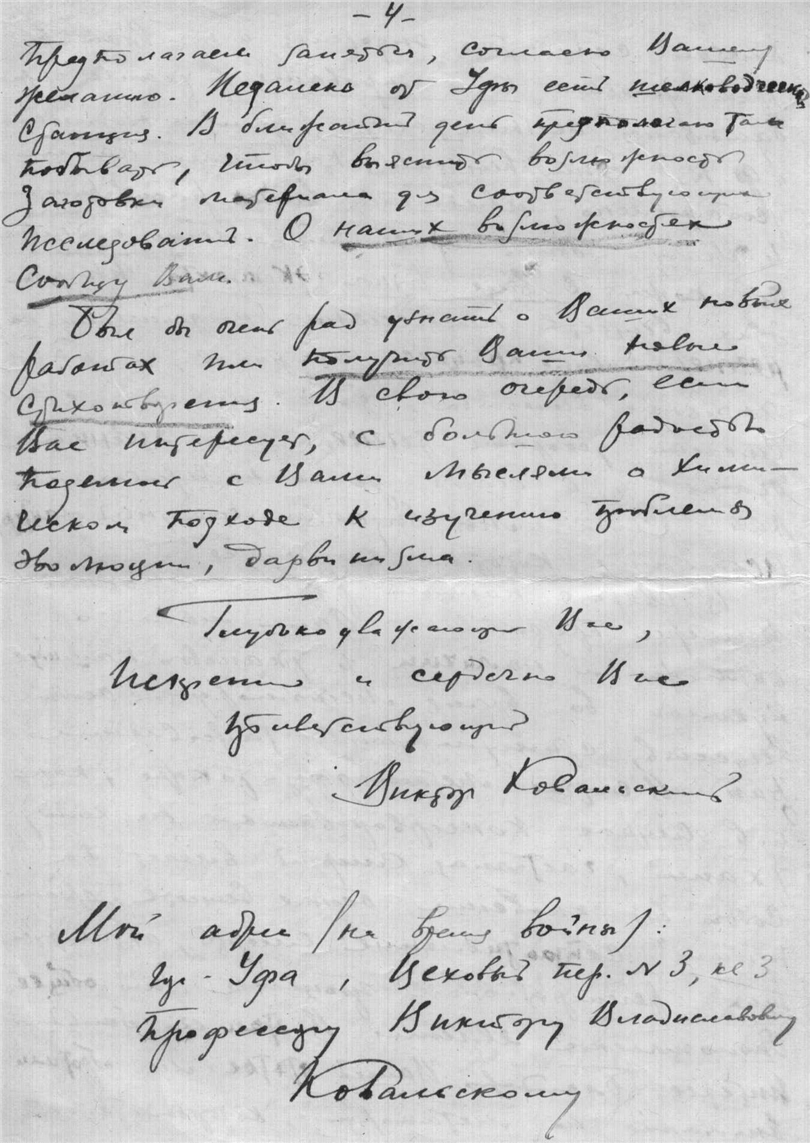 - 4 -
предполагаем заняться, согласно Вашему
желанию. Недалеко от Уфы есть шелководческая
станция. В ближайший день предполагаю там
побывать, чтобы выяснить возможность
заготовки материала для соответствующих
исследований. О наших возможностях
сообщу Вам.
Был бы очень рад узнать о Ваших новых
работах или получить Ваши новые
стихотворения. В свою очередь, если
Вас интересует, с большою радостью
поделюсь с Вами мыслями о хими-
ческом подходе к изучению проблемы
эволюции, дарвинизма.
Глубокоуважающий Вас,
Искренно и сердечно Вас
приветствующий
Виктор Ковальский
Мой адрес (на время войны):
гор. Уфа, Цеховый пер. № 3, кв 3
Профессору Виктору Владиславовичу
Ковальскому